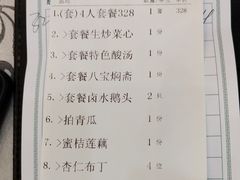 1.(套)4人套餐328 1 套 328
2. > 套餐生炒菜心 1 份
3. > 套餐特色酸汤 1 份
4. > 套餐八宝焖斋 1 份
5. > 套餐卤水鹅头 2 只
6. > 拍青瓜 1 份
7. > 蜜桔莲藕 1 份
8. > 杏仁布丁 4 位